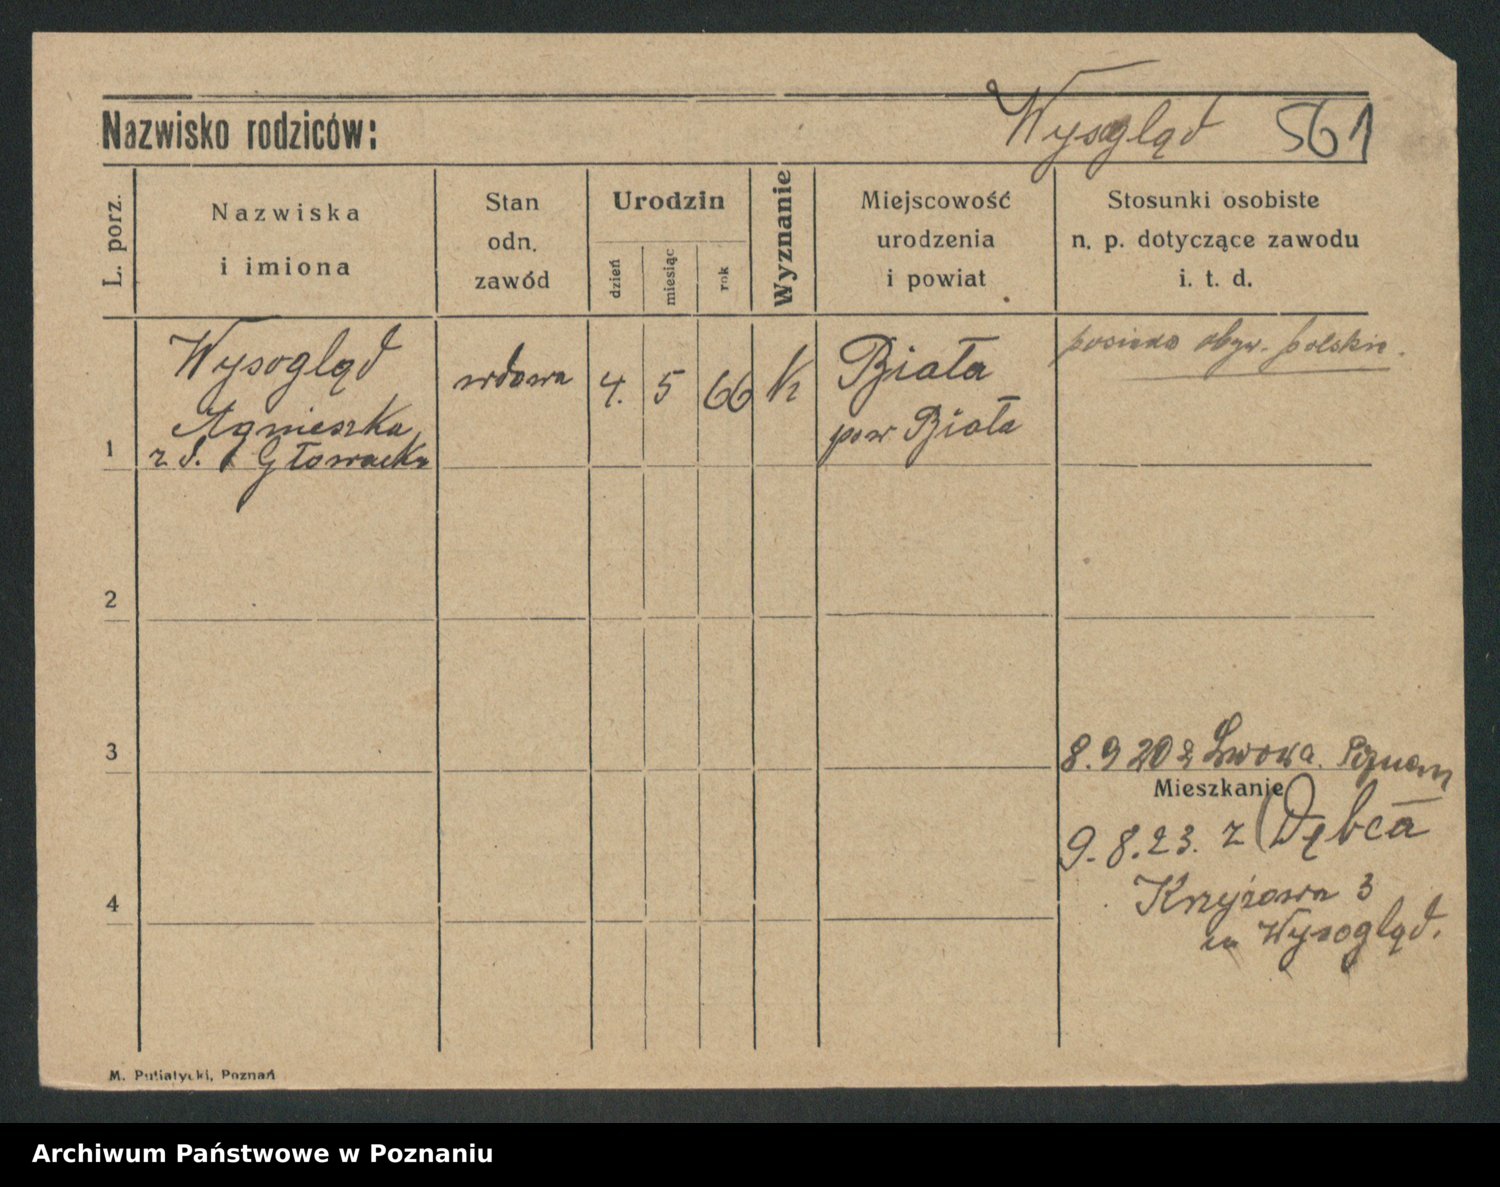 Nazwisko rodziców: Wysogląd 561
L. porz.
Nazwiska
i imiona
Stan
odn.
zawód
Urodzin
dzień
miesiąc
rok
Wyznanie
Miejscowość
urodzenia
i powiat
Stosunki osobiste
n. p. dotyczące zawodu
i. t. d.
1
Wysogląd
Agnieszka
z d. Głowacka
wdowa
4.
5
66
K
Biała
pow Biała
posiada obyw. polskie.
2
3
8.9 20 z Lwowa. Poznań
Mieszkanie
9.8.23. z Dębca
Krzyżowa 3
Wysogląd.
4
M. Putiatycki, Poznań
Archiwum Państwowe w Poznaniu